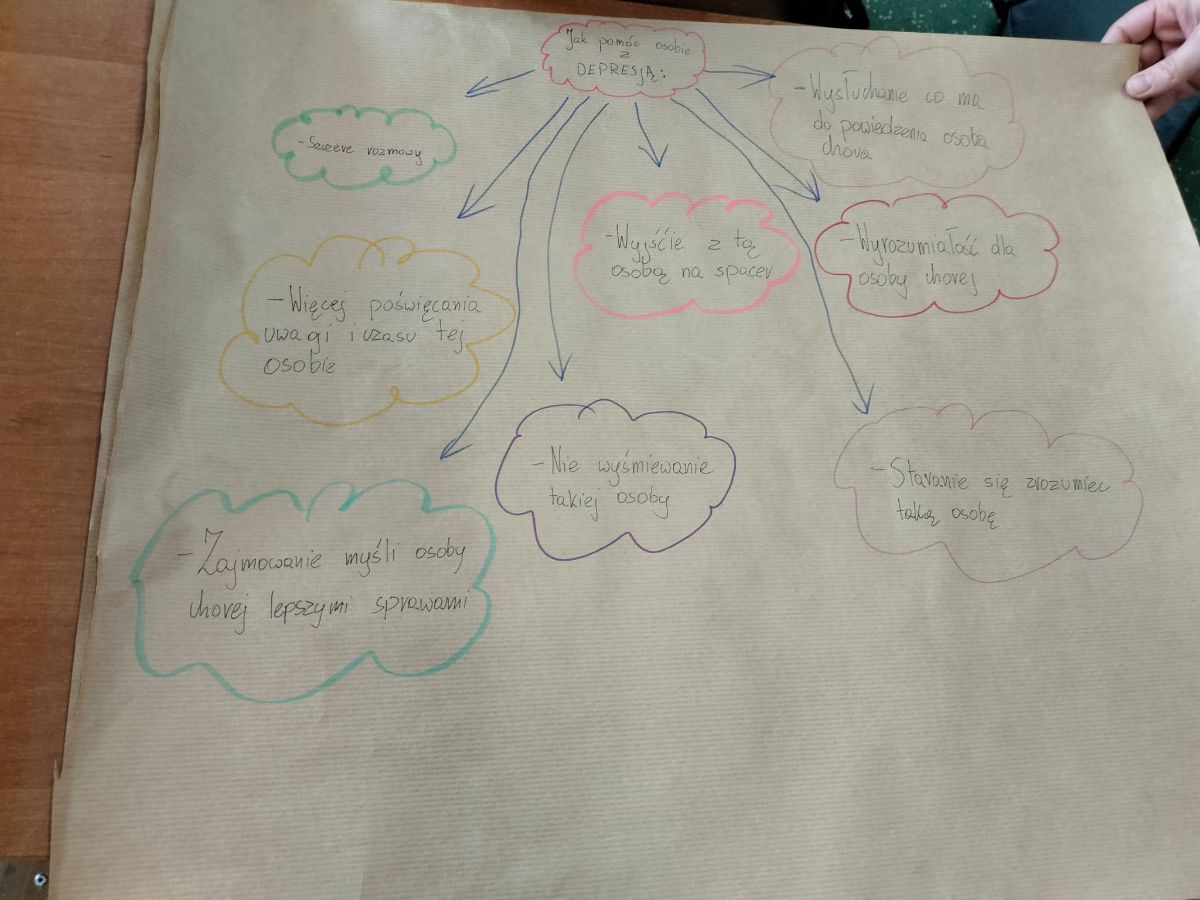 Jak pomóc osobie
z
DEPRESJĄ:
- Szczere rozmowy
- Wysłuchanie co ma
do powiedzenia osoba
chora
- Wyjście z tą
osobą na spacer
- Wyrozumiałość dla
osoby chorej
- Więcej poświęcania
uwagi i czasu tej
osobie
- Nie wyśmiewanie
takiej osoby
- Staranie się zrozumiec
taką osobę
- Zajmowanie myśli osoby
chorej lepszymi sprawami